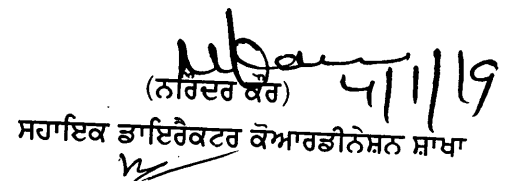 4/1/19
(ਨਰਿੰਦਰ ਕੌਰ)
ਸਹਾਇਕ ਡਾਇਰੈਕਟਰ ਕੋਆਰਡੀਨੇਸ਼ਨ ਸ਼ਾਖਾ